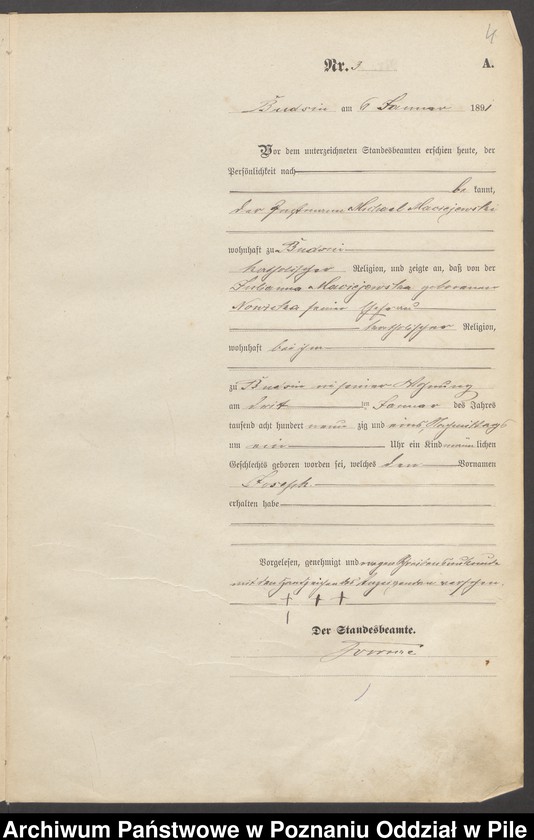 4
Nr. 3 A.
Budsin am 6 Januar 1891
Vor dem unterzeichneten Standesbeamten erschien heute, der
Persönlichkeit nach
be kannt,
der Michael Maciejewski
wohnhaft zu Budsin
katholischer Religion, und zeigte an, daß von der
Julianna Maciejewska geborenen
Nowicka seiner Ehefrau
katholischer Religion,
wohnhaft bei ihm
zu Budsin in seiner Wohnung
am dritten Januar des Jahres
tausend acht hundert neun zig und eins, Nachmittags
um ein Uhr ein Kind männ lichen
Geschlechts geboren worden sei, welches den Vornamen
Joseph
erhalten habe
Vorgelesen, genehmigt und wegen Schreibensunkunde
mit den Handzeichen des Anzeigenden versehen.
+ + +
Der Standesbeamte.
Archiwum Państwowe w Poznaniu Oddział w Pile